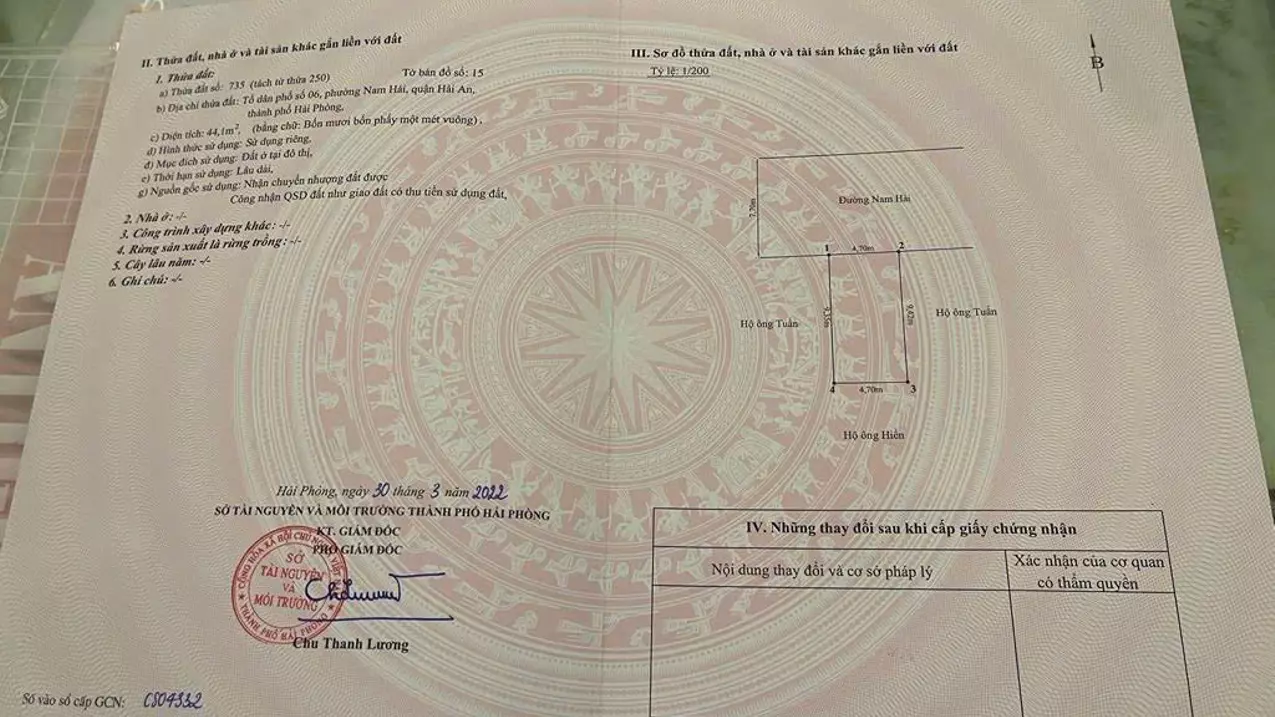 II. Thửa đất, nhà ở và tài sản khác gắn liền với đất
1. Thửa đất:
a) Thửa đất số: 735 (tách từ thửa 250) Tờ bản đồ số: 15
b) Địa chỉ thửa đất: Tổ dân phố số 06, phường Nam Hải, quận Hải An,
thành phố Hải Phòng,
c) Diện tích: 44,1m², (bằng chữ: Bốn mươi bốn phẩy một mét vuông),
d) Hình thức sử dụng: Sử dụng riêng,
đ) Mục đích sử dụng: Đất ở tại đô thị,
e) Thời hạn sử dụng: Lâu dài,
g) Nguồn gốc sử dụng: Nhận chuyển nhượng đất được
Công nhận QSD đất như giao đất có thu tiền sử dụng đất,
2. Nhà ở: -/-
3. Công trình xây dựng khác: -/-
4. Rừng sản xuất là rừng trồng: -/-
5. Cây lâu năm: -/-
6. Ghi chú: -/-
Hải Phòng, ngày 30 tháng 3 năm 2022
SỞ TÀI NGUYÊN VÀ MÔI TRƯỜNG THÀNH PHỐ HẢI PHÒNG
KT. GIÁM ĐỐC
PHÓ GIÁM ĐỐC
CỘNG HÒA XÃ HỘI CHỦ NGHĨA VIỆT
SỞ
TÀI NGUYÊN
VÀ
MÔI TRƯỜNG
THÀNH PHỐ HẢI PHÒNG
Chu Thanh Lương
Số vào sổ cấp GCN:
III. Sơ đồ thửa đất, nhà ở và tài sản khác gắn liền với đất
Tỷ lệ: 1/200
B
Đường Nam Hải
7,70m
1 4,70m 2
9,35m
9,42m
Hộ ông Tuấn
Hộ ông Tuấn
4 4,70m 3
Hộ ông Hiền
IV. Những thay đổi sau khi cấp giấy chứng nhận
Nội dung thay đổi và cơ sở pháp lý
Xác nhận của cơ quan
có thẩm quyền